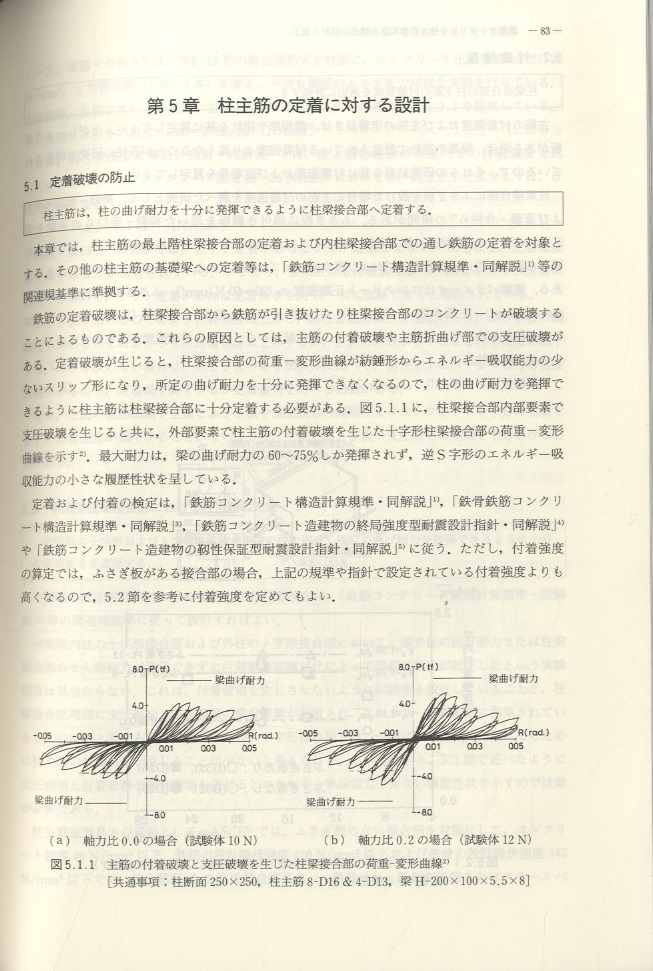 —83—
第5章 柱主筋の定着に対する設計
5.1 定着破壊の防止
柱主筋は，柱の曲げ耐力を十分に発揮できるように柱梁接合部へ定着する．
本章では，柱主筋の最上階柱梁接合部の定着および内柱梁接合部での通し鉄筋の定着を対象と
する．その他の柱主筋の基礎梁への定着等は，「鉄筋コンクリート構造計算規準・同解説」1) 等の
関連規基準に準拠する．
鉄筋の定着破壊は，柱梁接合部から鉄筋が引き抜けたり柱梁接合部のコンクリートが破壊する
ことによるものである．これらの原因としては，主筋の付着破壊や主筋折曲げ部での支圧破壊が
ある．定着破壊が生じると，柱梁接合部の荷重－変形曲線が紡錘形からエネルギー吸収能力の少
ないスリップ形になり，所定の曲げ耐力を十分に発揮できなくなるので，柱の曲げ耐力を発揮で
きるように柱主筋は柱梁接合部に十分定着する必要がある．図5.1.1に，柱梁接合部内部要素で
支圧破壊を生じると共に，外部要素で柱主筋の付着破壊を生じた十字形柱梁接合部の荷重－変形
曲線を示す2)．最大耐力は，梁の曲げ耐力の60〜75%しか発揮されず，逆S字形のエネルギー吸
収能力の小さな履歴性状を呈している．
定着および付着の検定は，「鉄筋コンクリート構造計算規準・同解説」1)，「鉄骨鉄筋コンクリ
ート構造計算規準・同解説」3)，「鉄筋コンクリート造建物の終局強度型耐震設計指針・同解説」4)
や「鉄筋コンクリート造建物の靱性保証型耐震設計指針・同解説」5) に従う．ただし，付着強度
の算定では，ふさぎ板がある接合部の場合，上記の規準や指針で設定されている付着強度よりも
高くなるので，5.2節を参考に付着強度を定めてもよい．
8.0 P(tf)
梁曲げ耐力
4.0
-0.05 -0.03 -0.01 R(rad.)
0.01 0.03 0.05
-4.0
梁曲げ耐力
-8.0
8.0 P(tf)
梁曲げ耐力
4.0
-0.05 -0.03 -0.01 R(rad.)
0.01 0.03 0.05
-4.0
梁曲げ耐力
-8.0
（a） 軸力比0.0の場合（試験体10N）
（b） 軸力比0.2の場合（試験体12N）
図5.1.1 主筋の付着破壊と支圧破壊を生じた柱梁接合部の荷重-変形曲線2)
［共通事項：柱断面250×250，柱主筋8-D16 & 4-D13，梁H-200×100×5.5×8］